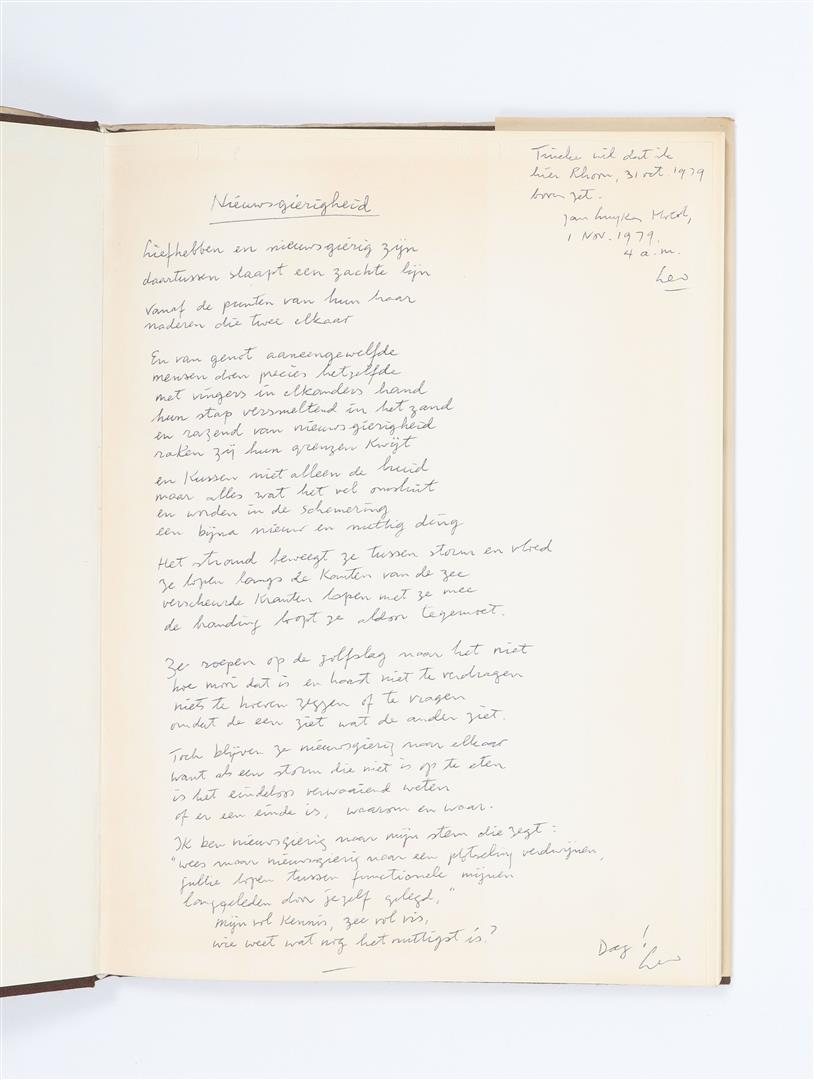 Tineke wil dat ik
hier Rhoon, 31 oct. 1979
boven zet.
Jan Luyken
1 Nov. 1979.
4 a.m.
Leo
Nieuwsgierigheid
Liefhebben en nieuwsgierig zijn
daartussen slaapt een zachte lijn
Vanaf de punten van hun haar
naderen die twee elkaar
En van genot aaneengewelfde
mensen doen precies hetzelfde
met vingers in elkanders hand
hun stap versmeltend in het zand
en razend van nieuwsgierigheid
raken zij hun grenzen kwijt
en kussen niet alleen de huid
maar alles wat het vel omsluit
en worden in de schemering
een bijna nieuw en nuttig ding
Het strand beweegt ze tussen storm en vloed
ze lopen langs de kanten van de zee
verscheurde kranten lopen met ze mee
de branding loopt ze aldoor tegemoet.
Ze roepen op de golfslag naar het niet
hoe mooi dat is en haast niet te verdragen
niets te hoeven zeggen of te vragen
omdat de een ziet wat de ander ziet.
Toch blijven ze nieuwsgierig naar elkaar
want als een storm die niet is op te eten
is het eindeloos verwaaiend weten
of er een einde is, waarom en waar.
Ik ben nieuwsgierig naar mijn stem die zegt:
"wees maar nieuwsgierig naar een plotseling verdwijnen,
jullie lopen tussen functionele mijnen
langgeleden door jezelf gelegd,"
mijn vol kennis, zee vol vis,
wie weet wat nog het nuttigst is?
Dag!
Leo